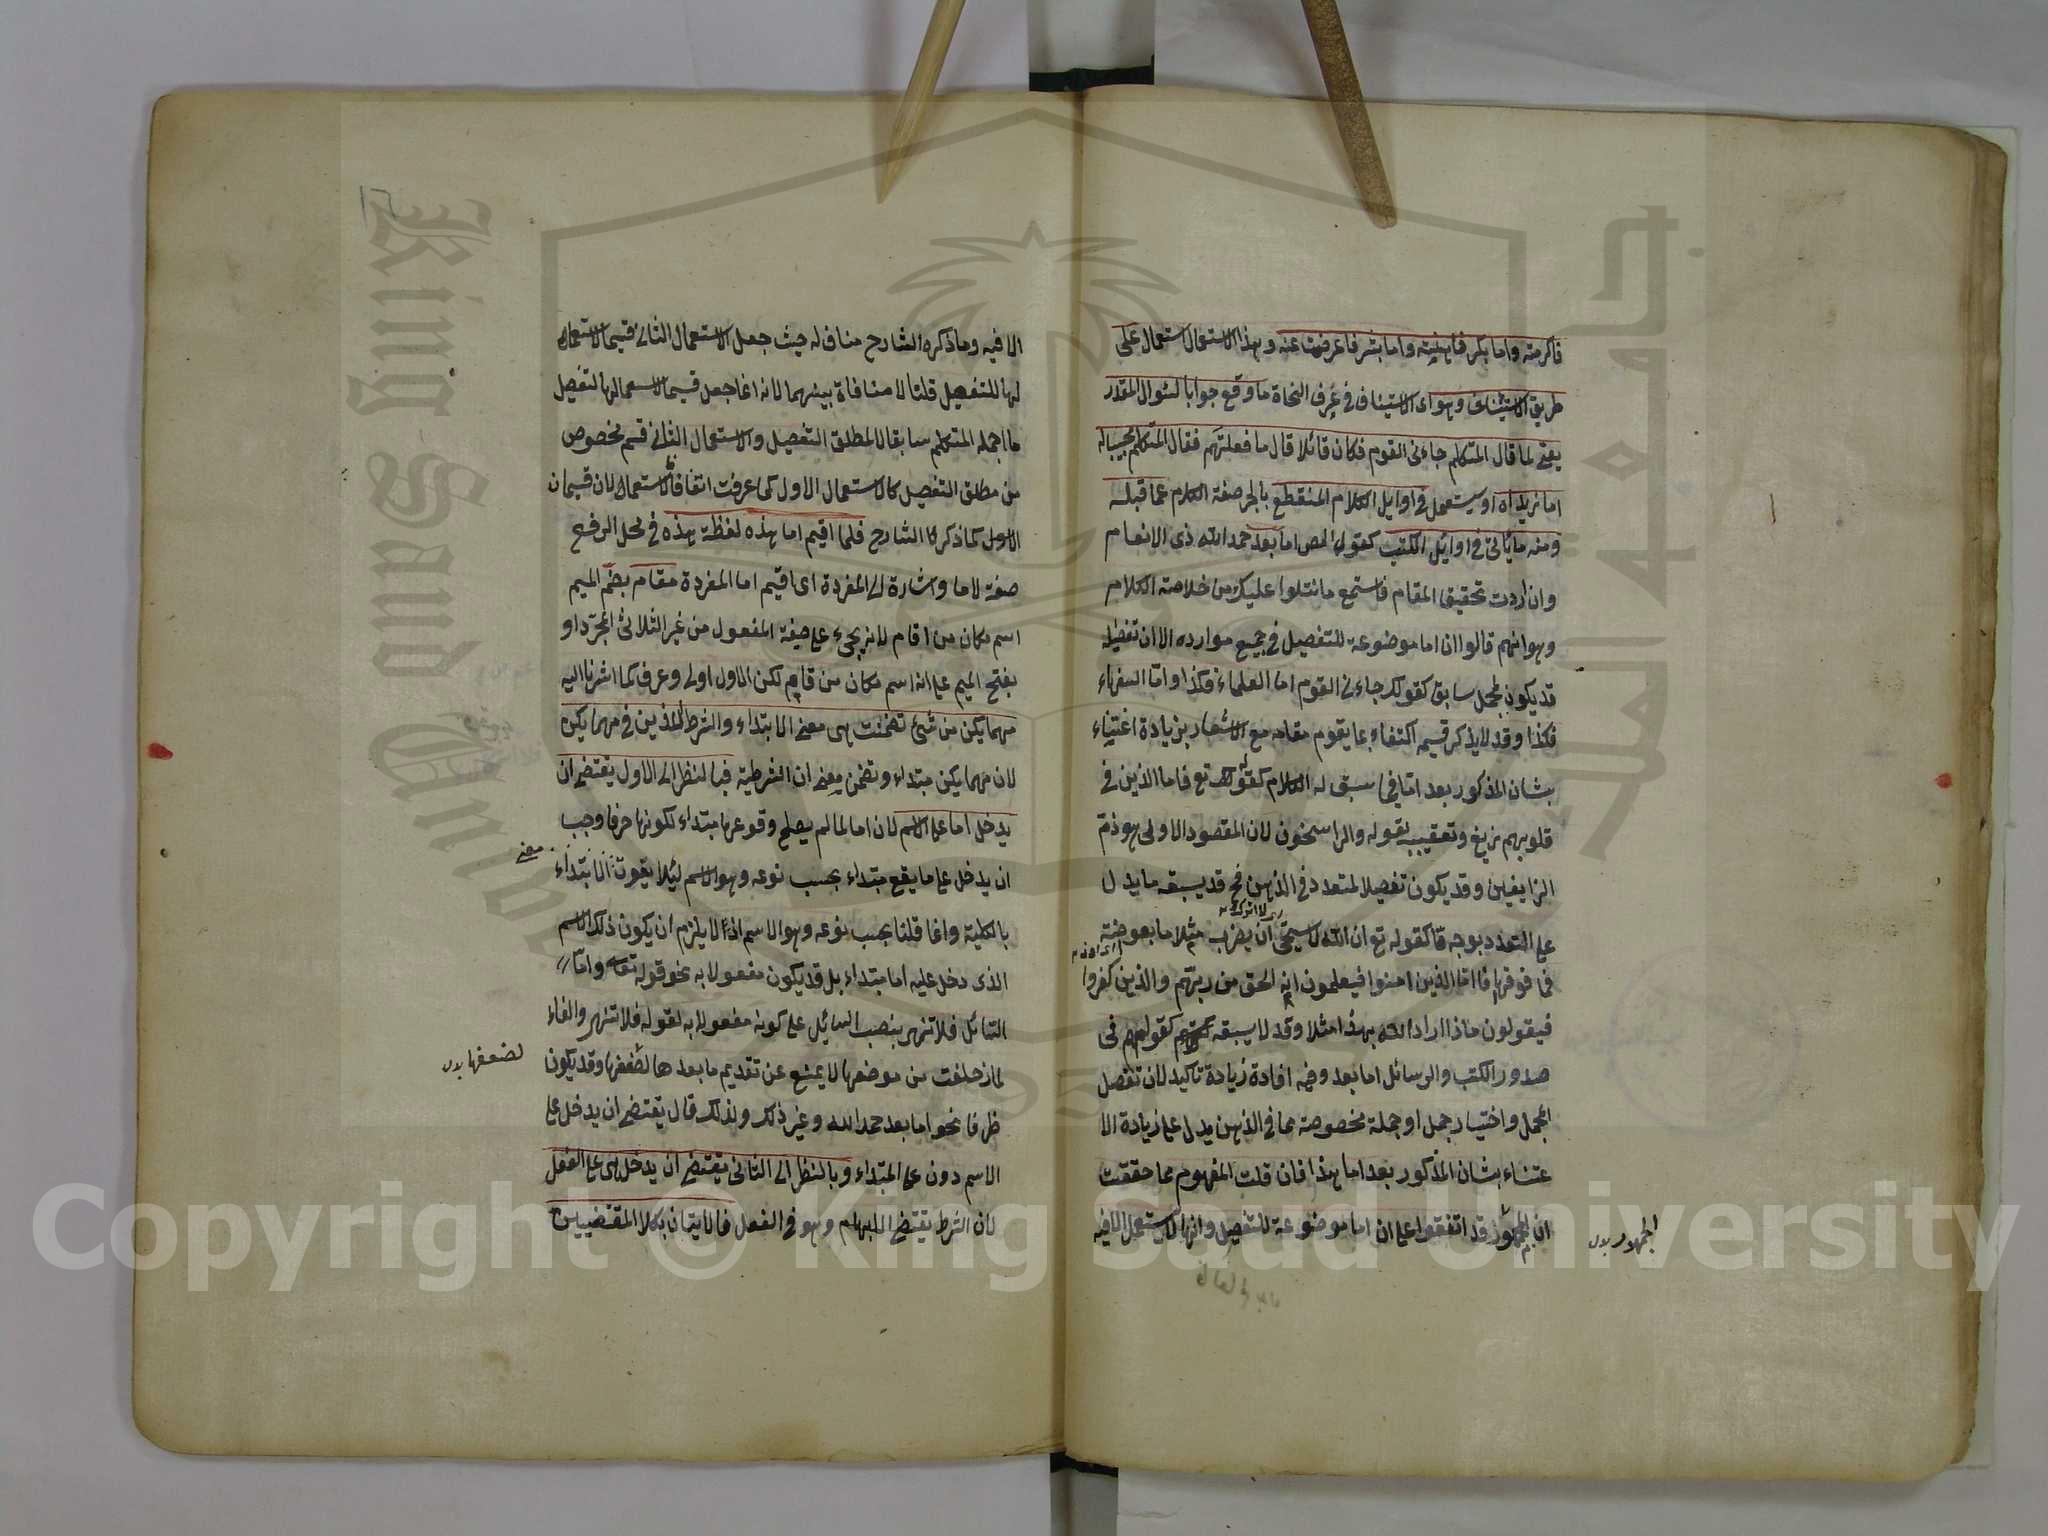 فاكرمته واما بكر فاهنته واما بشر فاعرضت عنه وهذا الاستعمال استعمال على
طريق الاستيناف وهو اى الاستيناف فى عرف النحاة ما وقع جوابا لسئوال المقدر
يعنى لما قال المتكلم جاءنى القوم فكان قائلا قال ما فعلتهم فقال المتكلم مجيبا له
اما زيد اه او يستعمل فى اوايل الكلام المنقطع بالجر صفة الكلام عما قبله
ومنه ما يأتى فى اوائل الكتب كقول المص اما بعد حمد الله ذى الانعام
وان اردت تحقيق المقام فاستمع ما نتلوا عليك من خلاصة الكلام
وهو انهم قالوا ان اما موضوعة للتفصيل فى جميع موارده الا ان تفصيله
قد يكون لمجمل سابق كقولك جاءنى القوم اما العلماء فكذا واما السفهاء
فكذا وقد لا يذكر قسيمه اكتفاء بما يقوم مقامه مع الاشعار بزيادة اعتناء
بشان المذكور بعد اما فيما سبق له الكلام كقوله تع فاما الذين فى
قلوبهم زيغ وتعقيبه بقوله والراسخون لان المقصود الاولى هو ذم
الزايغين وقد يكون تفصيلا لمتعدد فى الذهن فح قد يسبقه ما يدل
على التعدد بوجه ما كقوله تع ان الله لا يستحيى ان يضرب مثلا ما بعوضة
فما فوقها فاما الذين امنوا فيعلمون انه الحق من ربهم والذين كفروا
فيقولون ماذا اراد الله بهذا مثلا وقد لا يسبقه كقولهم فى
صدور الكتب والرسائل اما بعد وفيه افادة زيادة تاكيد لان تفصل
المجمل واختيار جمل او جملة مخصوصة مما فى الذهن يدل على زيادة الا
عتناء بشان المذكور بعد اما هذا فان قلت المفهوم مما حققت
ان الجمهور قد اتفقوا على ان اما موضوعة للتفصيل وانها لا يستعمل الا فيه
الجمهور بدل
الا فيه وما ذكره الشارح مناف له حيث جعل الاستعمال الثانى قسيما لاستعمال
لها للتفصيل قلنا لا منافاة بينهما لانه انما جعل قسيما لاستعمالها لتفصيل
ما اجمله المتكلم سابقا لا لمطلق التفصيل والاستعمال الثانى قسم مخصوص
من مطلق التفصيل كالاستعمال الاول كما عرفت اتفاقا لان قسيمان
الاول كما ذكر الشارح فلما اقيم اما هذه لفظة هذه فى محل الرفع
صفة لاما واشارة الى المفردة اى اقيم اما المفردة مقام بضم الميم
اسم مكان من اقام لانه يجىء على صيغة المفعول من غير الثلاثى المجرد او
بفتح الميم على انه اسم مكان من قام لكن الاول اولى وعرف كما اشرنا اليه
مهما يكن من شئ تضمنت هى معنى الابتداء والشرط الذين فى مهما يكن
لان مهما يكن مبتداء وتضمن معنى ان الشرطية فبالنظر الى الاول يقتضى ان
يدخل اما على الاسم لان اما لما لم يصلح وقوعها مبتداء لكونها حرفا وجب
ان يدخل على ما يقع مبتداء بحسب نوعه وهو الاسم لئلا يفوت الابتداء
معنى
بالكلية وانما قلنا بحسب نوعه وهو الاسم اذ لا يلزم ان يكون ذلك الاسم
الذى دخل عليه اما مبتداء بل قد يكون مفعولا به نحو قوله تعه واما
السائل فلا تنهر بنصب السائل على كونه مفعولا به لقوله فلا تنهر والفاء
لما زحلفت من موضعها لا يمنع عن تقديم ما بعدها لضعفها وقد يكون
لضعفها بدل
ظرفا نحو اما بعد حمد الله وغير ذلك ولذلك قال يقتضى ان يدخل على
الاسم دون على المبتداء وبالنظر الى الثانى يقتضى ان يدخل هى على الفعل
لان الشرط يقتضى الابهام وهو فى الفعل فالايتان بكلا المقتضيين
Copyright © King Saud University
King Saud University
جامعة الملك سعود
1957